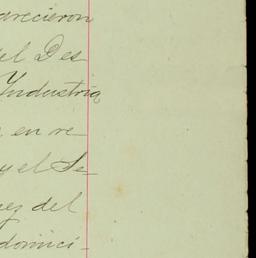 arecieron
del Des
Industria,
en re-
y el Se-
ez del
domici-